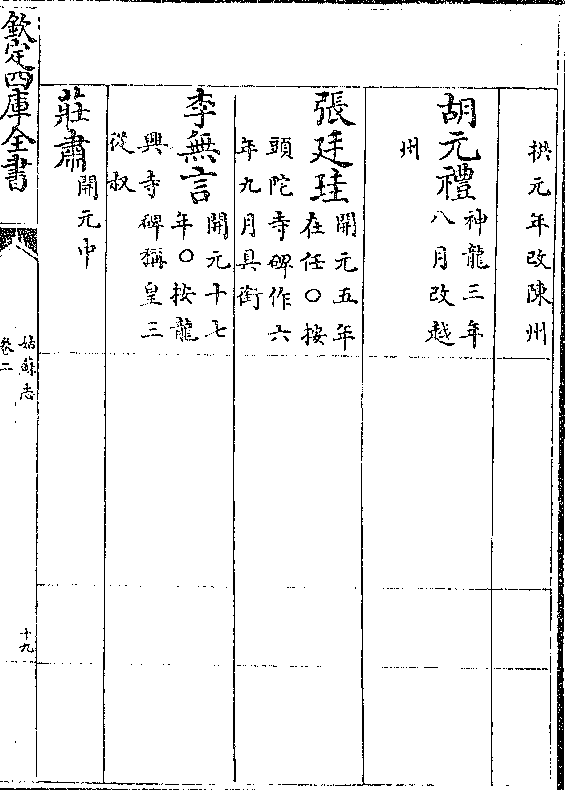 拱元年改陳州
胡元禮神龍三年
八月改越
州
張廷珪開元五年
在任〇按
頭陀寺碑作六
年九月具銜
李無言開元十七
年〇按龍
興寺碑稱皇三
從叔
莊肅開元中
欽定四庫全書
姑蘇志
卷二
十九